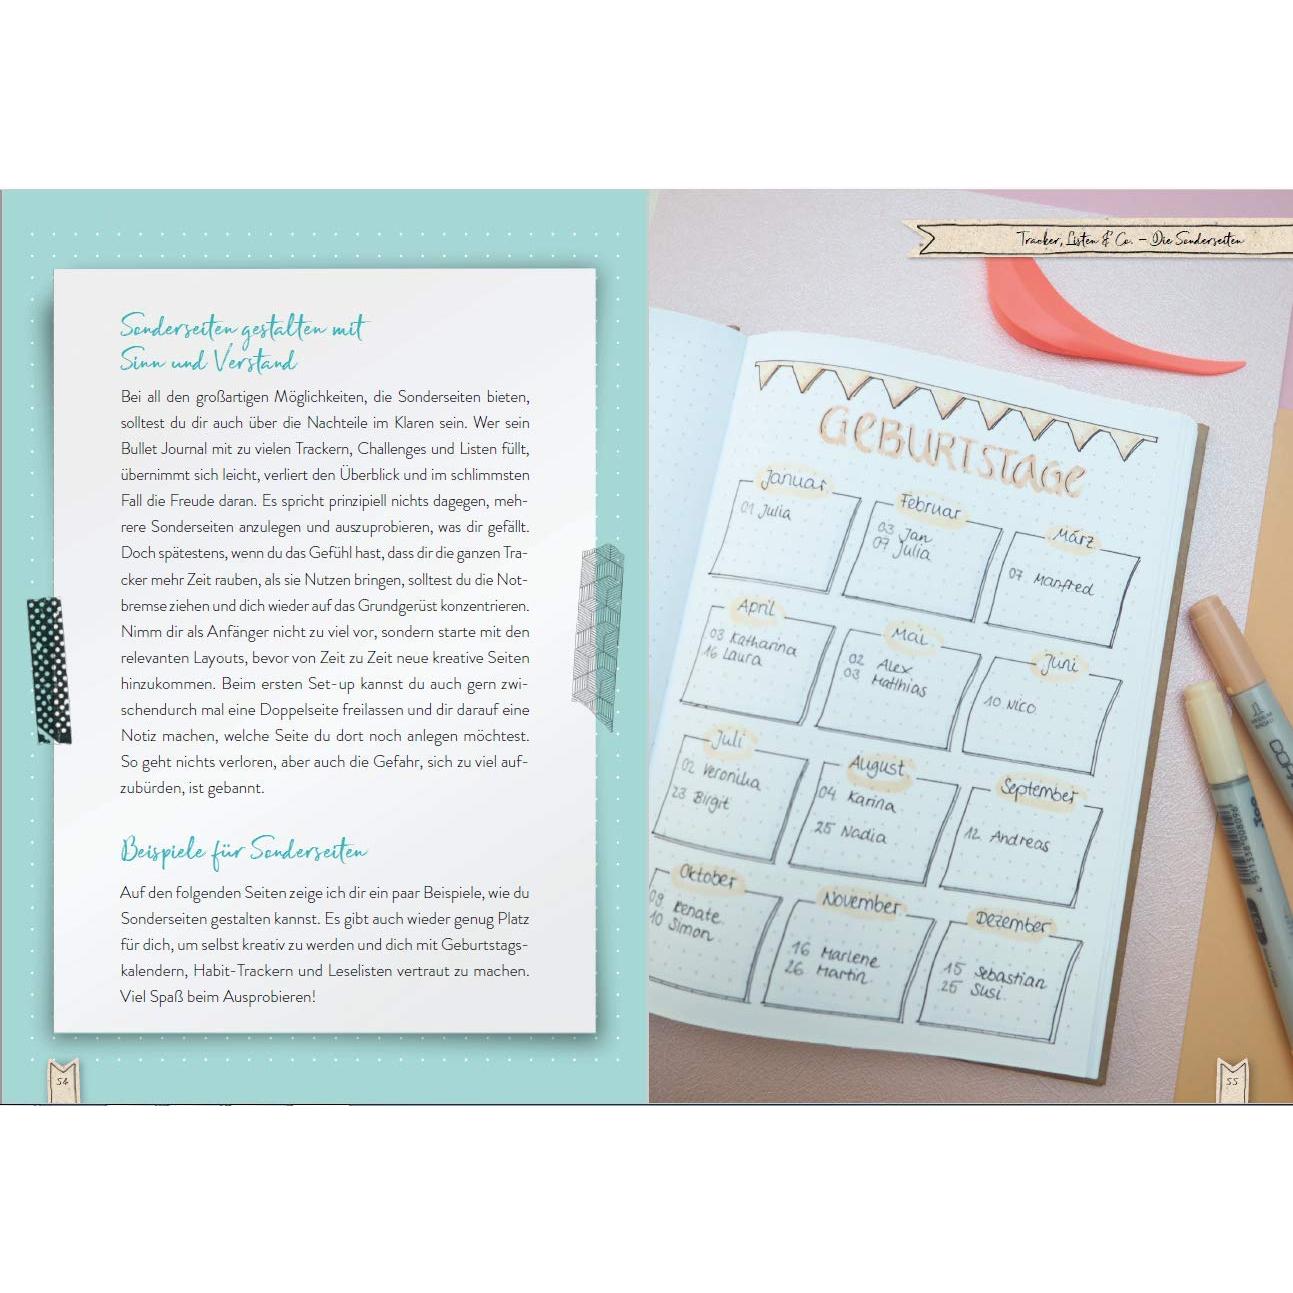 Sonderseiten gestalten mit
Sinn und Verstand
Bei all den großartigen Möglichkeiten, die Sonderseiten bieten,
solltest du dir auch über die Nachteile im Klaren sein. Wer sein
Bullet Journal mit zu vielen Trackern, Challenges und Listen füllt,
übernimmt sich leicht, verliert den Überblick und im schlimmsten
Fall die Freude daran. Es spricht prinzipiell nichts dagegen, meh-
rere Sonderseiten anzulegen und auszuprobieren, was dir gefällt.
Doch spätestens, wenn du das Gefühl hast, dass dir die ganzen Tra-
cker mehr Zeit rauben, als sie Nutzen bringen, solltest du die Not-
bremse ziehen und dich wieder auf das Grundgerüst konzentrieren.
Nimm dir als Anfänger nicht zu viel vor, sondern starte mit den
relevanten Layouts, bevor von Zeit zu Zeit neue kreative Seiten
hinzukommen. Beim ersten Set-up kannst du auch gern zwi-
schendurch mal eine Doppelseite freilassen und dir darauf eine
Notiz machen, welche Seite du dort noch anlegen möchtest.
So geht nichts verloren, aber auch die Gefahr, sich zu viel auf-
zubürden, ist gebannt.
Beispiele für Sonderseiten
Auf den folgenden Seiten zeige ich dir ein paar Beispiele, wie du
Sonderseiten gestalten kannst. Es gibt auch wieder genug Platz
für dich, um selbst kreativ zu werden und dich mit Geburtstags-
kalendern, Habit-Trackern und Leselisten vertraut zu machen.
Viel Spaß beim Ausprobieren!
54
Tracker, Listen & Co. – Die Sonderseiten
GEBURTSTAGE
Januar
01 Julia
Februar
03 Jan
07 Julia
März
07 Manfred
April
03 Katharina
16 Laura
Mai
02 Alex
03 Matthias
Juni
10 Nico
Juli
02 Veronika
23 Birgit
August
04 Karina
25 Nadia
September
12 Andreas
Oktober
09 Renate
10 Simon
November
16 Marlene
26 Martin
Dezember
15 Sebastian
25 Susi
55